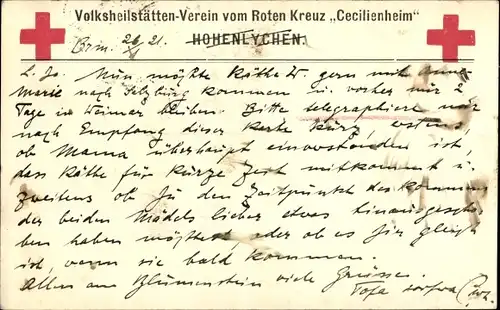 Volksheilstätten-Verein vom Roten Kreuz „Cecilienheim"
HOHENLYCHEN.
Nun möchte Käthe W. gern mit Anne
Marie nach kommen u. vorher nur 2
Tage in Weimar bleiben. Bitte telegraphiere mir
nach Empfang dieser Karte kurz, erstens,
ob Mama überhaupt einverstanden ist,
dass Käthe für kurze Zeit mitkommt u.
zweitens ob Ju den Zeitpunkt des Kommens
der beiden Mädels lieber etwas hinausgescho-
ben haben möchtest, oder ob es Jir gleich
ist, wenn sie bald kommen.
Allen am Blumenstein viele Grüsse.